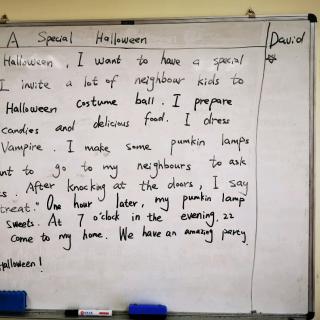 A Special Halloween
David
Halloween. I want to have a special
I invite a lot of neighbour kids to
Halloween costume ball. I prepare
candies and delicious food. I dress
Vampire. I make some pumkin lamps
to go to my neighbours to ask
After knocking at the doors, I say
treat." One hour later, my pumkin lamp
sweets. At 7 o'clock in the evening, 22
come to my home. We have an amazing party.
Halloween!